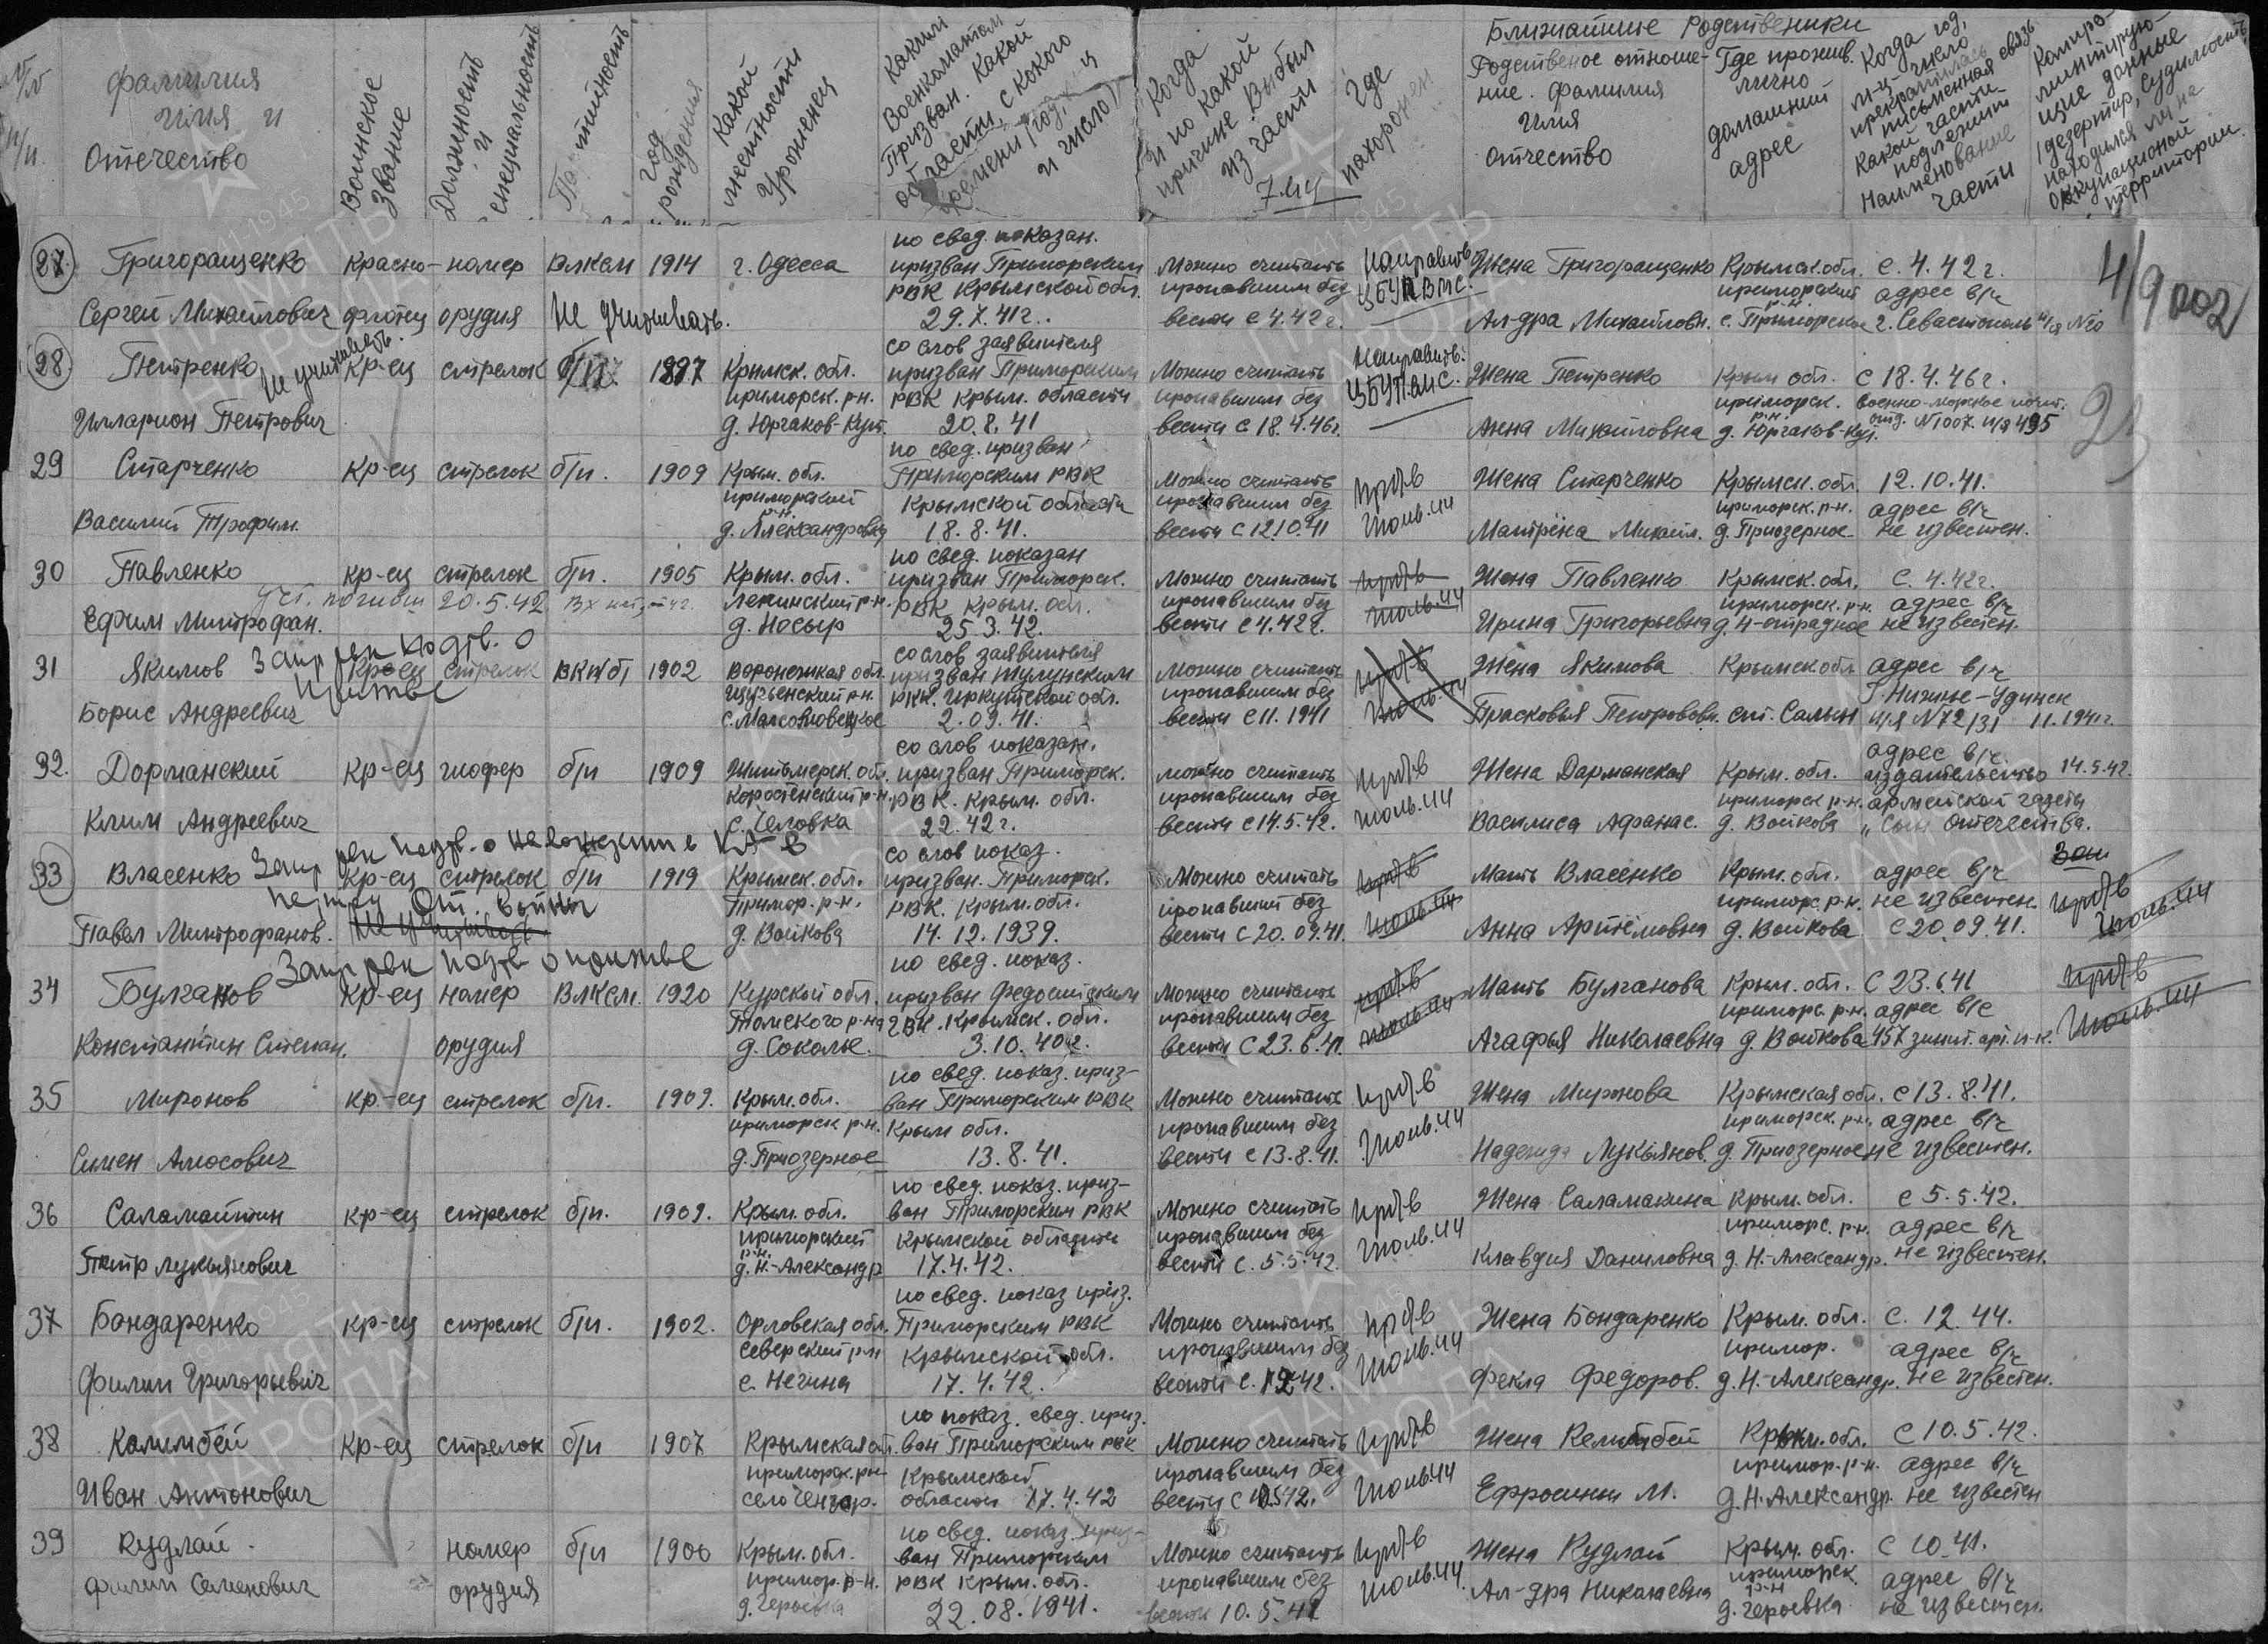 №№ п/п.
Фамилия имя и Отчество
Воинское Звание
Должность и специальность
Партийность
Год рождения
Какой местности Уроженец
Каким Военкоматом Призван. Какой области, с какого времени (год, м-ц и число)
Когда и по какой причине Выбыл из части
7.44
Где похоронен
Ближайшие Родственики
Родственое отноше-ние. Фамилия имя отчество
Где прожив. лично домашний адрес
Когда год, м-ц число прекратилась письменная связь Какой части подлежит Наименование части
Компро-ментирую-щие данные (дезертир, судимость, находился ли на оккупационой территории.
27. Григоращенко Сергей Михайлович
красно-флотец
номер орудия
Влксм
1914
г. Одесса
Не учитывать.
по свед. показан. призван Приморским РВК Крымской обл. 29.7.41г.
Можно считать пропавшим без вести с 4.42г.
Направить ЦБУПВМС.
Жена Григоращенко Ал-дра Михайловн.
Крымск.обл. приморский р.н. с. Приморское
с. 4. 42г. адрес в/ч г. Севастополь
4/9002
28. Петренко Илларион Петрович
Не учитывать.
кр-ец
стрелок
б/п.
1897
Крымск. обл. приморск. р-н.
со слов заявителя призван Приморским РВК Крым. области 20.8.41
Можно считать пропавшим без вести с 18.4.46г.
Направить:
Жена Петренко Анна Михайловна
Крым обл. приморск. р-н.
с 18.4.46г. военно-морск почт. отд. N 1007. п/я 495
29 Старченко Василий Трофим.
кр-ец
стрелок
б/п.
1909
Крым. обл. приморский р-н. д. Александровка
по свед. призван Приморским РВК Крымской области 18.8.41.
Можно считать пропавшим без вести с 12.10.41
июль.44
Жена Старченко Матрёна Михайл.
Крымск. обл. приморск. р-н. д. Приозерное
12.10.41. адрес в/ч не известен.
30 Павленко Ефим Митрофан.
уст. погибш 20.5.42
кр-ец
стрелок
б/п.
1905
Крым. обл. Ленинский р-н. д. Носыр
по свед. показан призван Приморск. РВК Крым. обл. 25.3.42.
Можно считать пропавшим без вести с 4.42г.
июль.44
Жена Павленко Ирина Григорьевна
Крымск. обл. приморск. р-н. д. Н-отрадное
с. 4.42г. адрес в/ч не известен.
31 Якимов Борис Андреевич
Запр рвк подтв. о
кр-ец
стрелок
ВКП(б)
1902
со слов заявителя призван Тулунским РВК. Иркутской обл. 2.09.41.
Можно считать пропавшим без вести с 11.1941
июль.44
Жена Якимова Прасковья Петрововн.
Крымск обл ст. Салын
адрес в/ч г. Нижне-Удинск п/я N 72/31 11.1941г.
32. Дорманский Клим Андреевич
кр-ец
шофер
б/п
1909
Житомерск. обл. Коростенский р-н.
со слов показан. призван Приморск. РВК. Крым. обл. 22.42г.
можно считать пропавшим без вести с 14.5.42.
июль.44
Жена Дарманская Василиса Афанас.
Крым. обл. приморск р-н. д. Войкова
адрес в/ч. издательство армейской газеты „Сын Отечества.
14.5.42.
33 Власенко Павел Митрофанов.
Запр рвк подтв. о
кр-ец
стрелок
б/п
1919
Крымск. обл. Примор. р-н. д. Войкова
со слов показ. призван. Приморск. РВК. Крым. обл. 14.12.1939.
Можно считать пропавшим без вести с 20.09.41.
июль.44
Мать Власенко Анна Артёмовна
Крым. обл. приморс. р.н. д. Войкова
адрес в/ч не известен. с 20.09.41.
июль.44
34 Булганов Константин Степан.
Запр рвк подтв о
кр-ец
номер орудия
Влксм.
1920
Курской обл. Томского р-на д. Соколье.
по свед. показ. призван Федосийским ГВК. Крымск. обл. 3.10.40г.
Можно считать пропавшим без вести с 23.6.41.
июль.44
Мать Булганова Агафья Николаевна
Крым. обл. приморс. р-н. д. Войкова
с 23.6.41 адрес в/с 457 зинит. арт. п-к.
июль.44
35 Миронов Симен Амосович
кр-ец
стрелок
б/п.
1909.
Крым. обл. приморск р-н. д. Приозерное
по свед. показ. приз-ван Приморским РВК Крым обл. 13.8.41.
Можно считать пропавшим без вести с 13.8.41.
июль.44
Жена Миронова Надежда Лукьянов.
Крымская обл. приморск. р-н. д. Приозерное
с 13.8.41. адрес в/ч не известен.
36 Саламатин Петр Лукьянович
кр-ец
стрелок
б/п.
1909.
Крым. обл. приморский р-н. д. Н.-Александр
по свед. показ. приз-ван Приморским РВК Крымской области 17.4.42.
Можно считать пропавшим без вести с. 5.5.42.
июль.44
Жена Саламакина Клавдия Даниловна
Крым. обл. приморс. р-н. д. Н.-Александр.
с 5.5.42. адрес в/ч не известен.
37 Бондаренко Филип Григорьевич
кр-ец
стрелок
б/п.
1902.
Орловская обл. Северский р-н с. Негина
по свед. показ приз. Приморским РВК Крымской обл. 17.4.42.
Можно считать пропавшим без вести с. 12 42.
июль.44
Жена Бондаренко Фекла Федоров.
Крым. обл. примор. д. Н.-Александр.
с. 12 44. адрес в/ч не известен.
38 Калимбей Иван Антонович
кр-ец
стрелок
б/п
1907
Крымская обл. приморск. р-н
по показ. свед. приз. ван Приморским РВК Крымской области 17.4.42
Можно считать пропавшим без вести с 10.5.42.
июль.44
Жена Келибей Ефросинни М.
Крым. обл. примор. р-н. д. Н. Александр.
с 10.5.42. адрес в/ч не известен
39 Кудлай. Филип Семенович
номер орудия
б/п
1900
Крым. обл. примор. р-н. д. Героевка
по свед. показ. приз-ван Приморским РВК Крым. обл. 22.08.1941.
Можно считать пропавшим без вести 10.5.42
июль.44.
Жена Кудлай Ал-дра Николаевна
Крым. обл. приморск. р-н д. Героевка.
с 10.41. адрес в/ч не известен.
ПАМЯТЬ НАРОДА 1941-1945